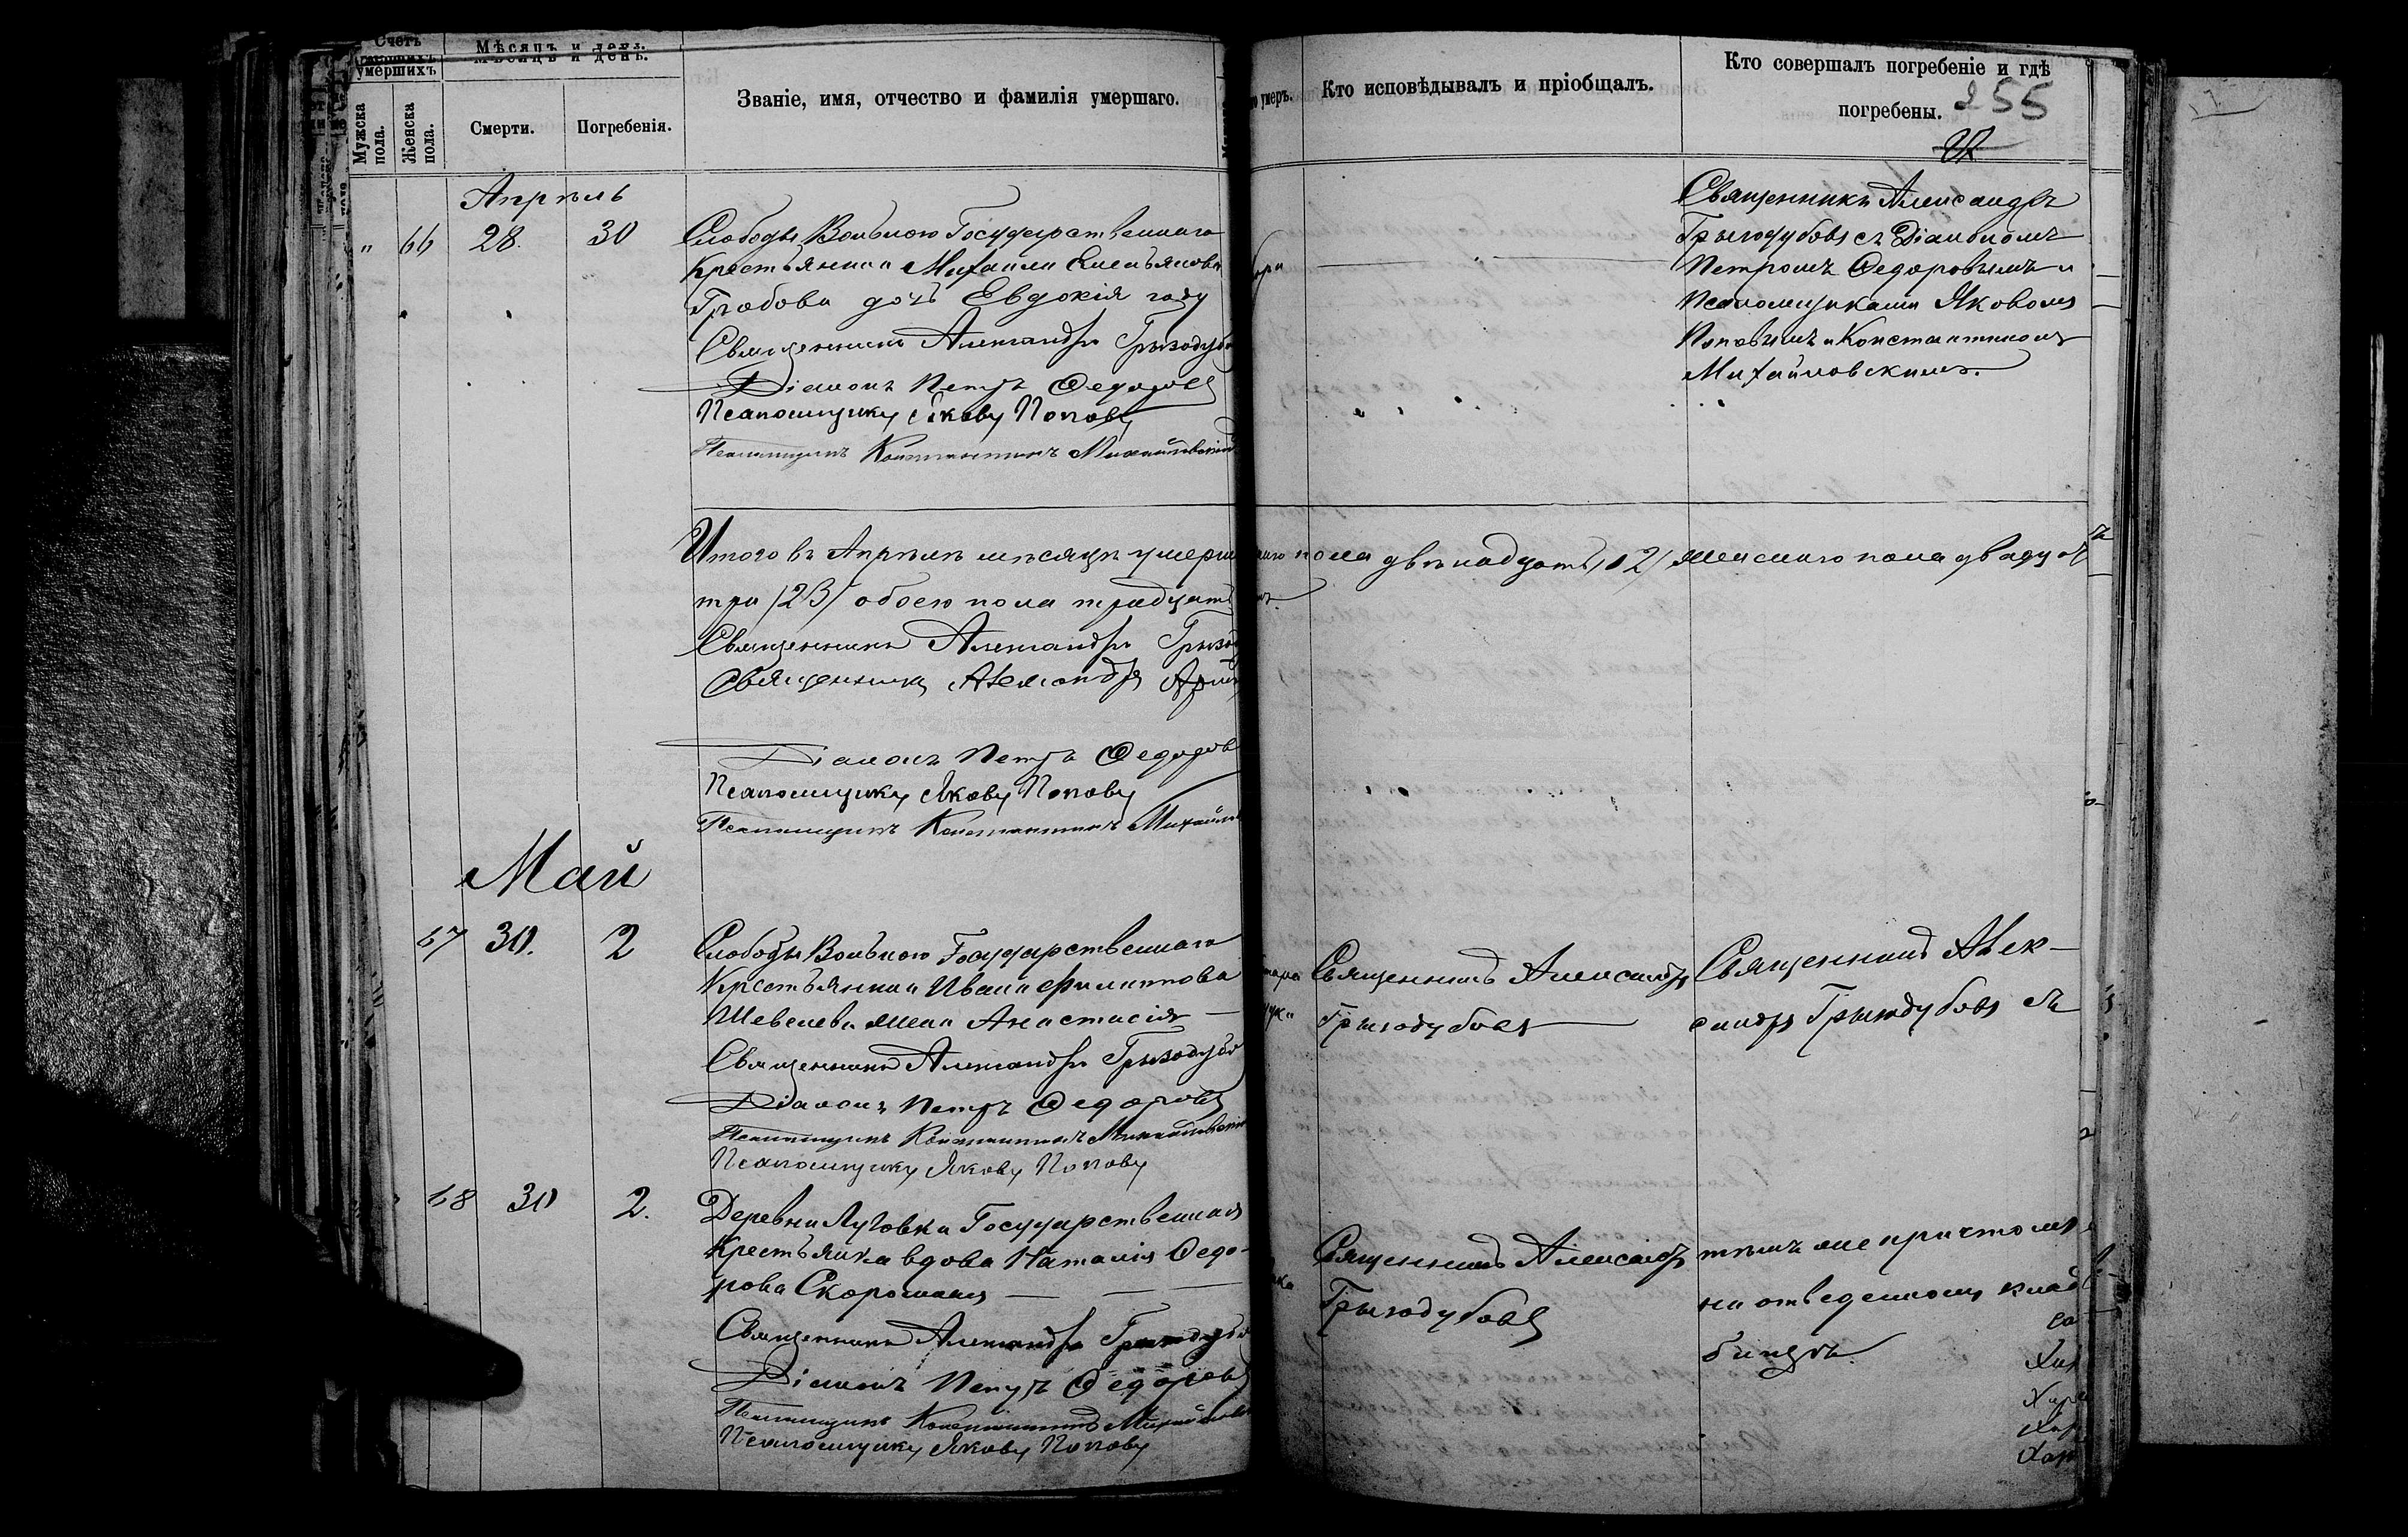 Счетъ умершихъ
Мѣсяцъ и день.
Мужска пола.
Женска пола.
Смерти.
Погребенія.
Званіе, имя, отчество и фамилія умершаго.
умеръ.
Кто исповѣдывалъ и пріобщалъ.
Кто совершалъ погребеніе и гдѣ
погребены.
255
Апрѣль
" 66 28. 30
Слободы Вольною Государственнаго
Крестьянина Михаила Емельянова
дочь Евдокія
Священникъ Александръ Грызодуб
Діаконъ Петръ Ѳедоровъ
Псаломщикъ Яковъ Поповъ
Псаломщикъ Константинъ Михайловскій
Священникъ Александръ
Грызодубовъ съ Діакономъ
Петромъ Ѳедоровымъ и
Псаломщиками Яковомъ
Поповымъ и Константиномъ
Михайловскимъ.
Итого въ Апрѣлѣ мѣсяцѣ умерш пола двѣнадцать /12/ женскаго пола двадцать
три /23/ обоего пола тридцать
Священникъ Александръ Грызо
Священникъ Александръ
Діаконъ Петръ Ѳедоров
Псаломщикъ Яковъ Поповъ
Псаломщикъ Константинъ Михайл
Май
67 30. 2
Слободы Вольною Государственнаго
Крестьянина Ивана Филиппова
Шевелева жена Анастасія
Священникъ Александръ Грызодубо
Діаконъ Петръ Ѳедоровъ
Псаломщикъ Константинъ Михайловскій
Псаломщикъ Яковъ Поповъ
Священникъ Александръ
Грызодубовъ
Священникъ Алек-
сандръ Грызодубовъ съ
68 30 2.
Деревни Луговки Государственная
Крестьянка вдова Наталія Ѳедо-
рова
Священникъ Александръ Грызодубо
Діаконъ Петръ Ѳедоровъ
Псаломщикъ Константинъ Михайловск
Псаломщикъ Яковъ Поповъ
Священникъ Александръ
Грызодубовъ
тѣмъ же причтомъ
на отведенномъ клад
бищѣ.